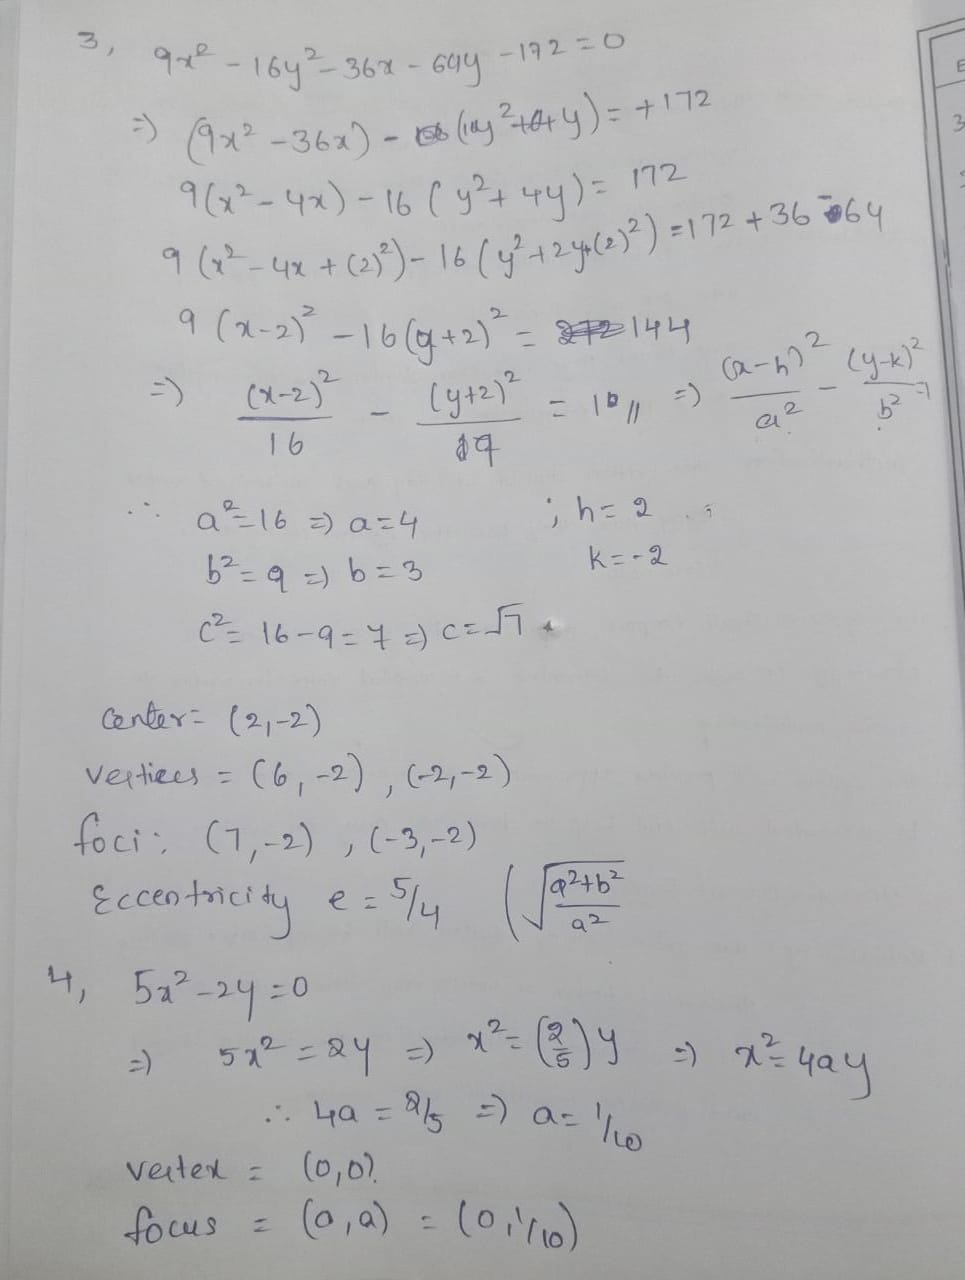 3, 9x² - 16y² - 36x - 64y - 172 = 0
=) (9x² - 36x) - (16y² + 64y) = +172
9(x² - 4x) - 16(y² + 4y) = 172
9(x² - 4x + (2)²) - 16(y² + 2y + (2)²) = 172 + 36 - 64
9(x-2)² - 16(y+2)² = 144
=) (x-2)²/16 - (y+2)²/9 = 1 // =) (x-h)²/a² - (y-k)²/b² = 1
∴ a² = 16 =) a = 4 ; h = 2
b² = 9 =) b = 3 k = -2
c² = 16 - 9 = 7 =) c = √7
center = (2, -2)
vertices = (6, -2), (-2, -2)
foci: (7, -2), (-3, -2)
Eccentricity e = 5/4 (√(a²+b²/a²)
4, 5x² - 2y = 0
=) 5x² = 2y =) x² = (2/5)y =) x² = 4ay
∴ 4a = 2/5 =) a = 1/10
vertex = (0,0)
focus = (0, a) = (0, 1/10)
E
3